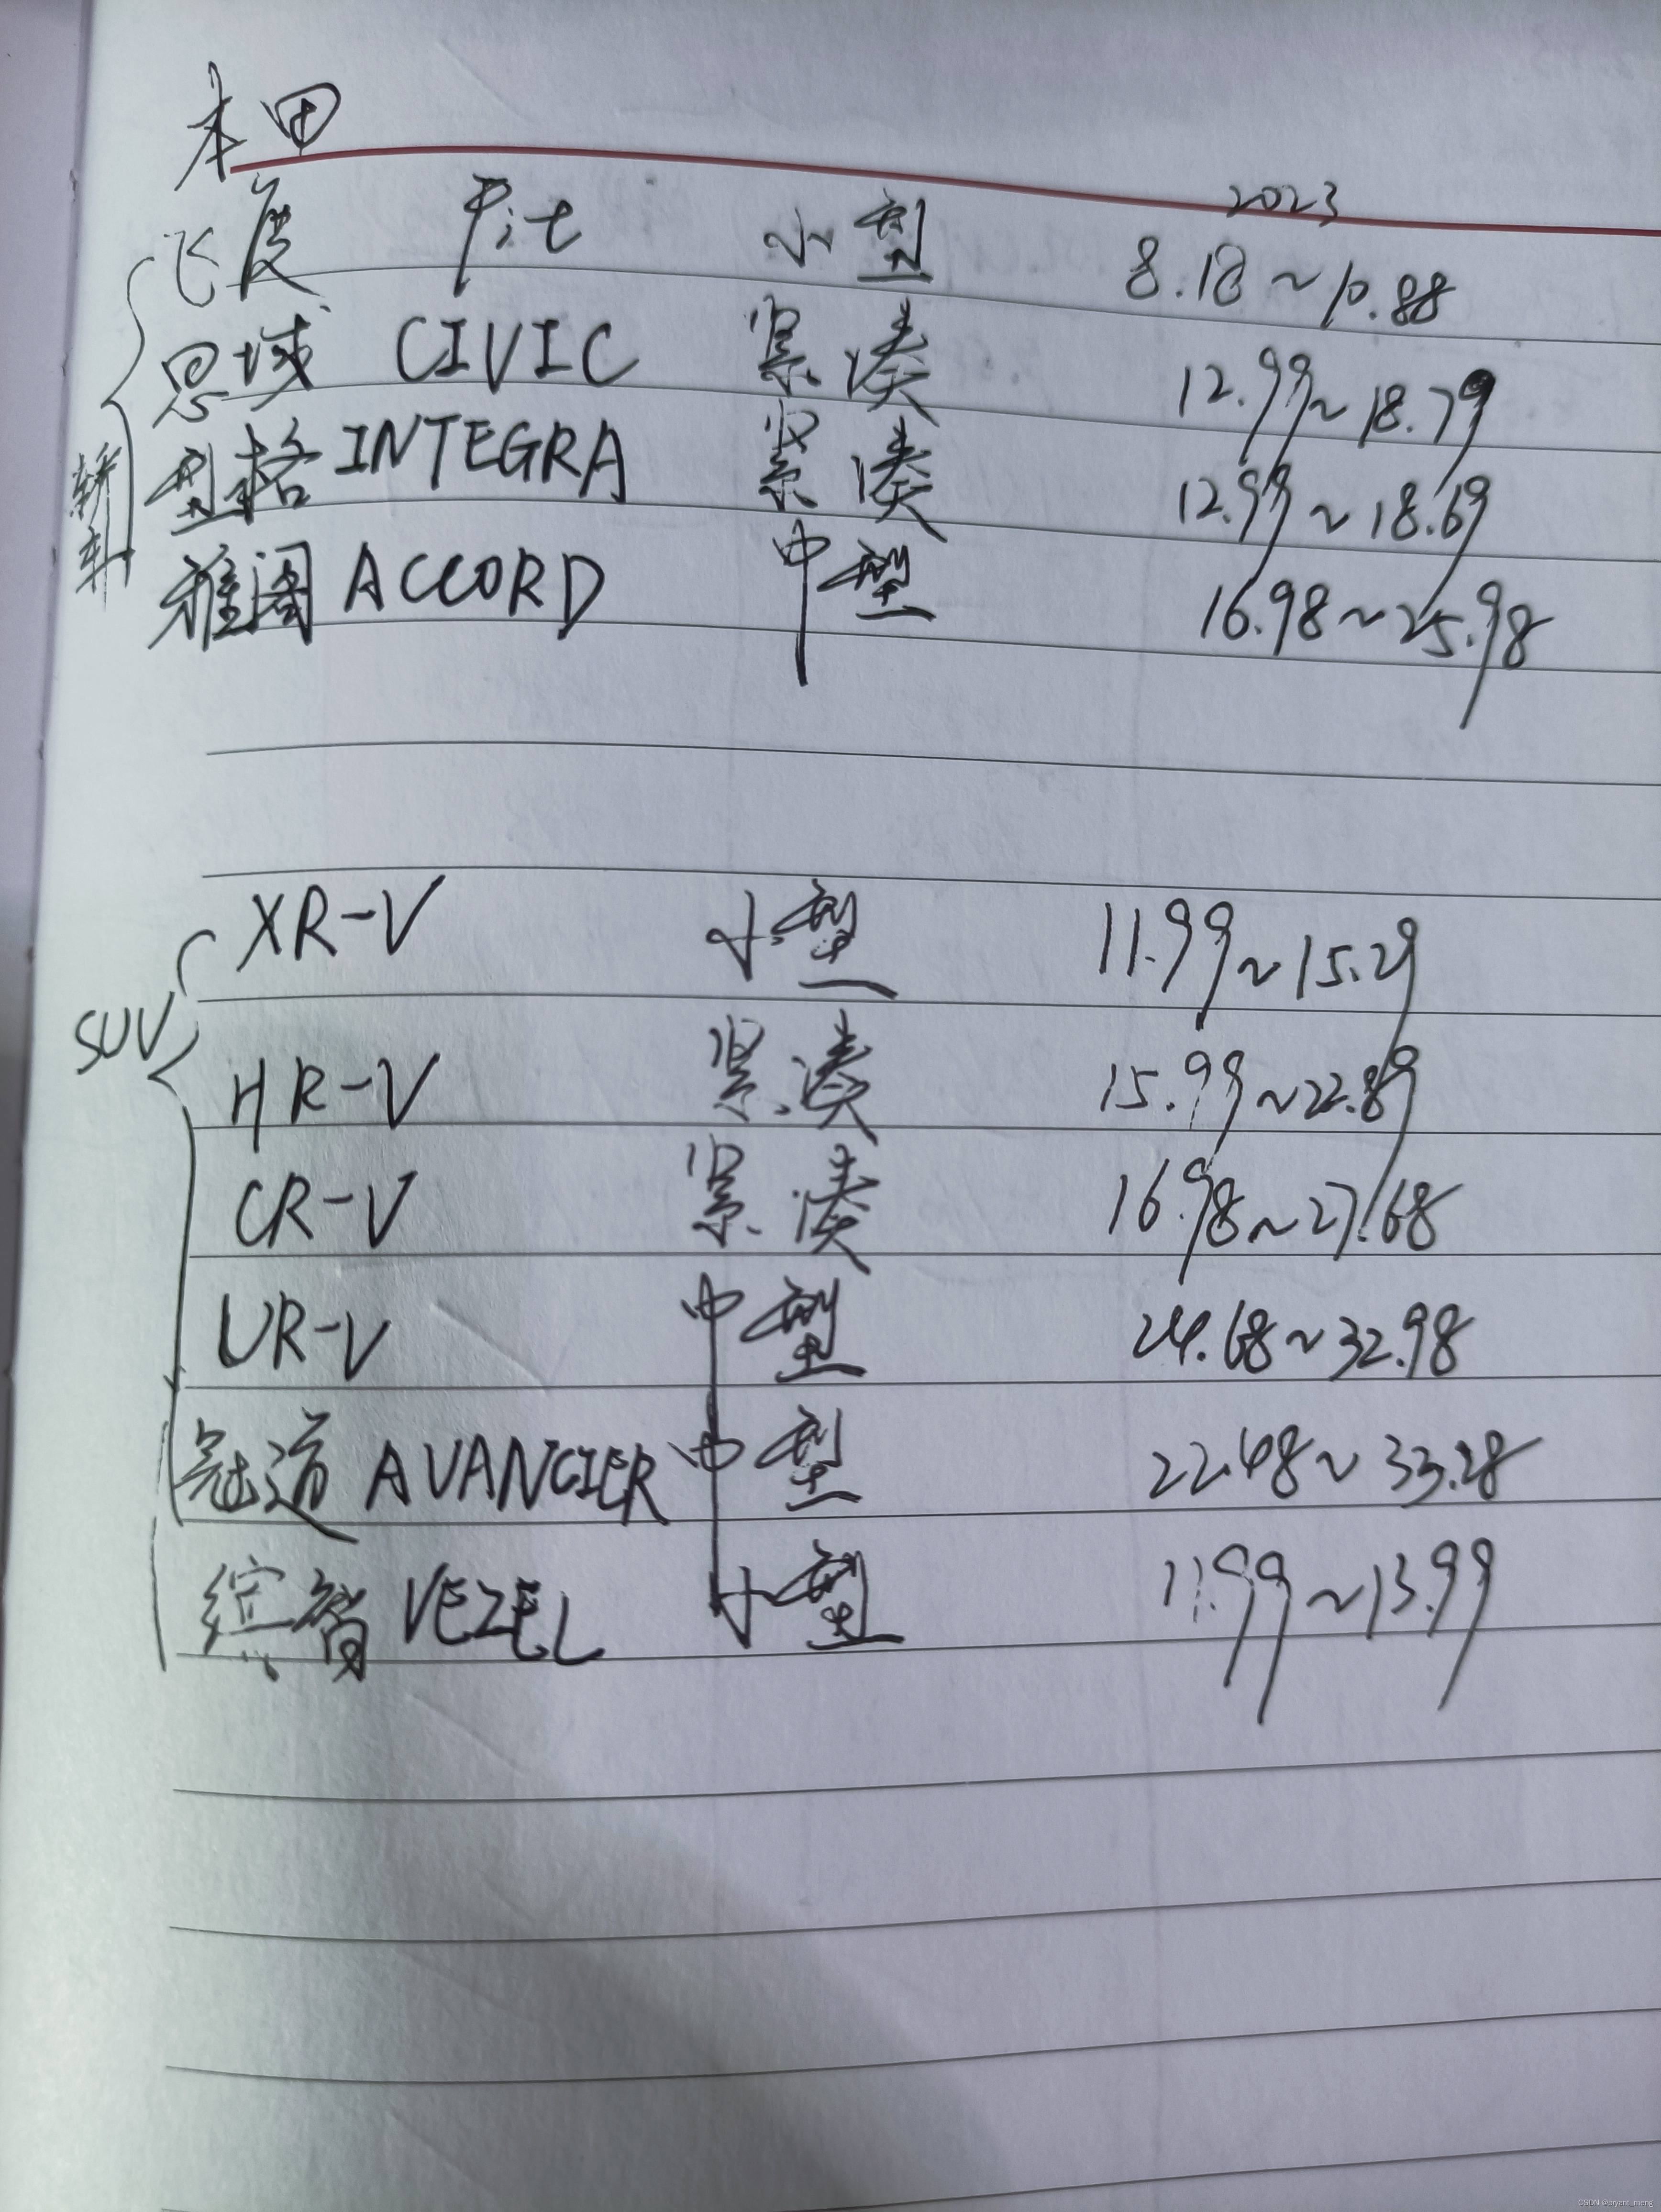 本田
2023
飞度 Fit 小型 8.18~10.88
思域 CIVIC 紧凑 12.99~18.79
型格 INTEGRA 紧凑 12.99~18.69
轿车
雅阁 ACCORD 中型 16.98~25.98
XR-V 小型 11.99~15.29
SUV
HR-V 紧凑 15.99~22.89
CR-V 紧凑 16.98~27.68
UR-V 中型 24.68~32.98
冠道 AVANCIER 中型 22.48~33.28
缤智 VEZEL 小型 11.99~13.99
CSDN @bryant_meng